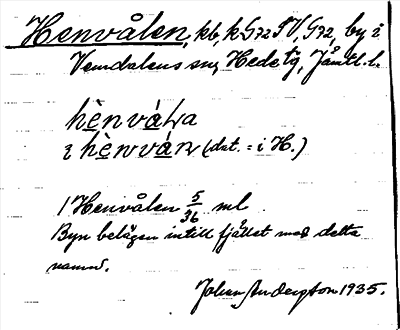 Henvålen, kb, k G72 SV, G72, by i
Vemdalens sn, Hede tg, Jämtl. l.
hènvála
i hènván (dat. = i H.)
1 Henvålen 5/36 ml
Byn belägen intill fjället med detta
namn.
Johan Andersson 1935.